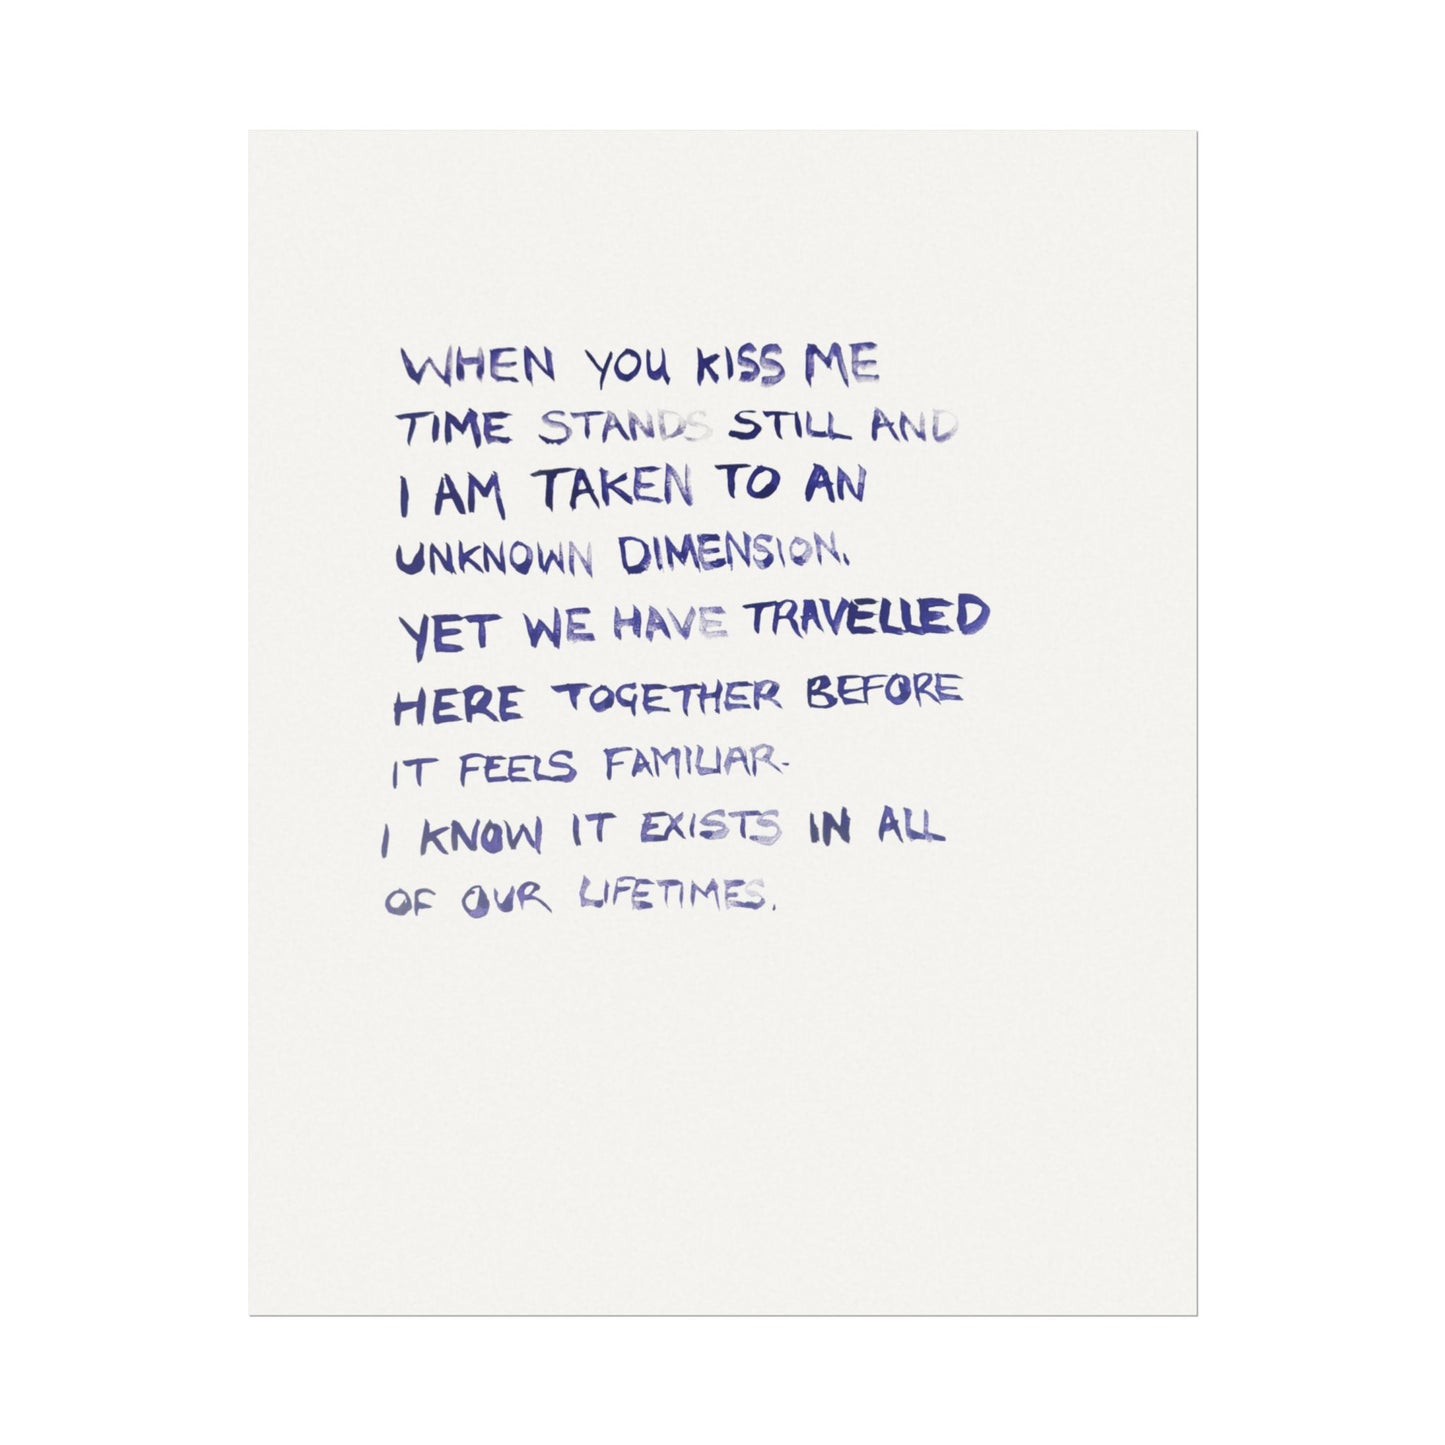 WHEN YOU KISS ME
TIME STANDS STILL AND
I AM TAKEN TO AN
UNKNOWN DIMENSION.
YET WE HAVE TRAVELLED
HERE TOGETHER BEFORE
IT FEELS FAMILIAR.
I KNOW IT EXISTS IN ALL
OF OUR LIFETIMES.